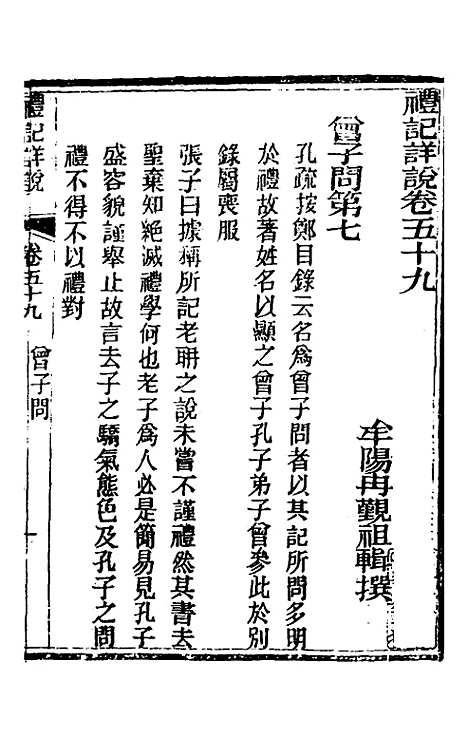 禮記詳說卷五十九
牟陽冉覲祖輯撰
曾子問第七
孔疏按鄭目錄云名爲曾子問者以其記所問多明
於禮故著姓名以顯之曾子孔子弟子曾參此於別
錄屬喪服
張子曰據稱所記老聃之說未嘗不謹禮然其書去
聖棄知絶滅禮學何也老子爲人必是簡易見孔子
盛容貌謹舉止故言去子之驕氣態色及孔子之問
禮不得不以禮對
禮記詳說
卷五十九
曾子問
一